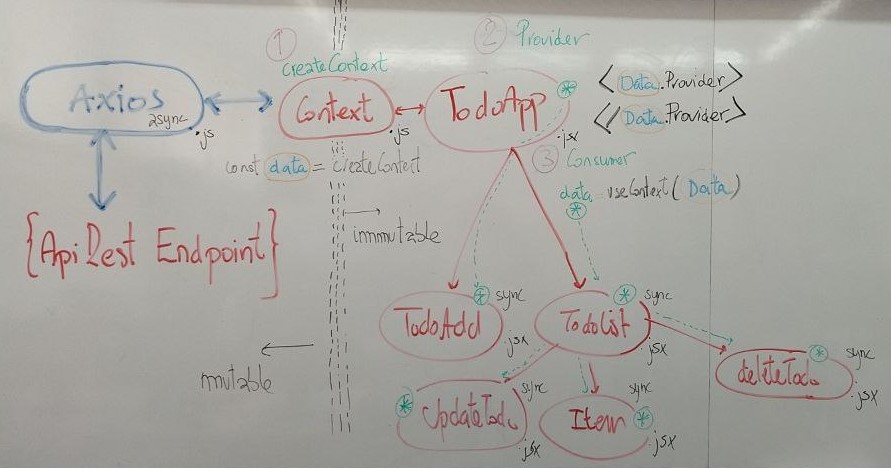 1
createContext
2 Provider
Axios
async
.js
Context
.js
TodoApp
*
.jsx
<Data.Provider>
</Data.Provider>
const data = createContext
3 Consumer
data
*
useContext(Data)
{Api Rest Endpoint}
immutable
mutable
TodoAdd
*
sync
.jsx
TodoList
*
sync
.jsx
deleteTodo
*
sync
.jsx
UpdateTodo
*
sync
.jsx
Item
*
sync
.jsx